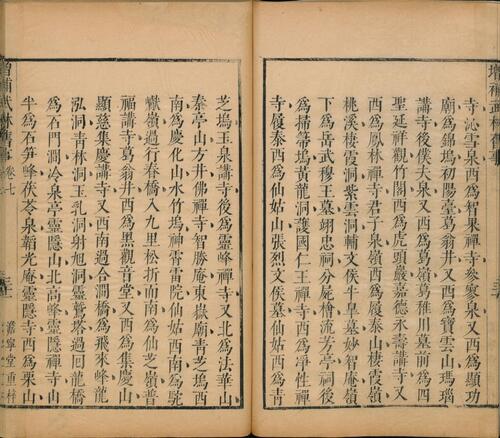 增補武林舊事
寺沁雪泉西為智果禪寺參寥泉又西為顯功
廟為錦塢初陽臺葛翁井又西為寶雲山瑪瑙
講寺後僕夫泉又西為葛嶺葛稚川墓前為四
聖延祥觀竹閣西為虎頭巖嘉德永壽講寺又
西為鳳林禪寺君子泉嶺西為履泰山棲霞嶺
桃溪棲霞洞紫雲洞輔文侯牛皐墓妙智庵嶺
下為岳武穆王墓翊忠祠分屍檜流芳亭祠後
為掃箒塢黃龍洞護國仁王禪寺西為淨性禪
寺履泰西為仙姑山張烈文侯墓仙姑西為青
芝塢玉泉講寺後為靈峰禪寺又北為法華山
秦亭山方井佛禪寺智勝庵東嶽廟青芝塢西
南為慶化山水竹塢神霄雷院仙姑西南為駝
巘嶺過行春橋入九里松折而南為仙芝嶺普
福講寺葛翁井西為黑觀音堂又西為集慶山
顯慈集慶講寺又西南過合澗橋為飛來峰龍
泓洞青林洞玉乳洞射旭洞靈鷲塔過回龍橋
為石門澗冷泉亭靈隱山北高峰靈隱禪寺山
半為石笋峰茯苓泉韜光庵靈隱寺西為巢山
增補武林舊事 卷七
嘉寧堂重梓